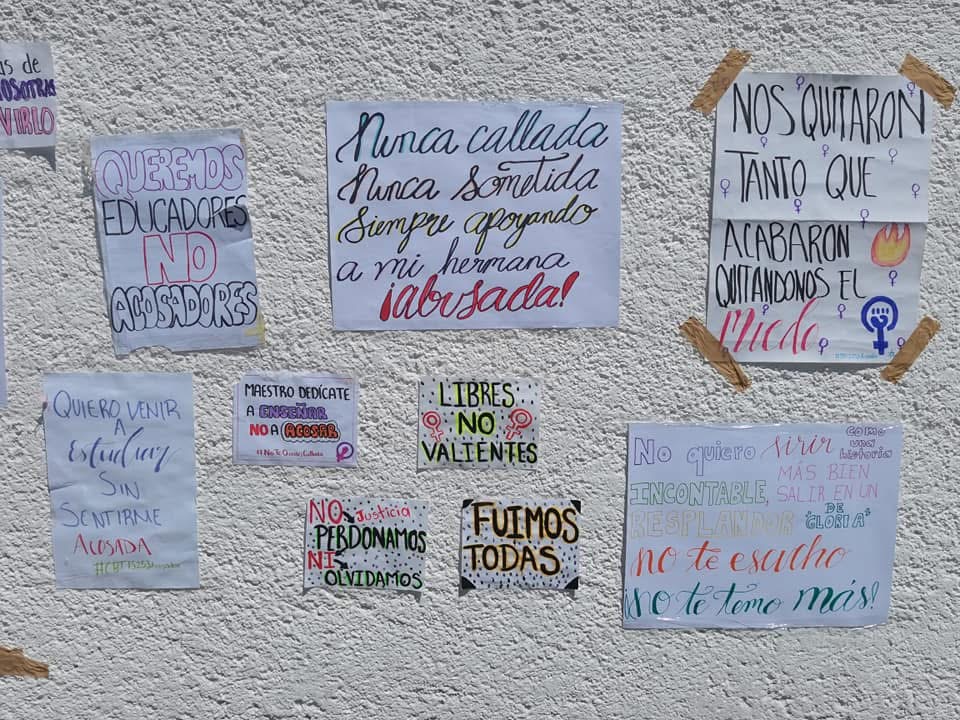 as de
NOSOTRAS
VIRLO
QUEREMOS
EDUCADORES
NO
ACOSADORES
Nunca callada
Nunca sometida
Siempre apoyando
a mi hermana
¡abusada!
NOS QUITARON
TANTO QUE
ACABARON
QUITANDONOS EL
Miedo
QUIERO VENIR
A
Estudiar
SIN
SENTIRME
ACOSADA
MAESTRO DEDÍCATE
A ENSEÑAR
NO A ACOSAR
#NoTeQuedesCallada
LIBRES
NO
VALIENTES
NO Justicia
PERDONAMOS
NI
OLVIDAMOS
FUIMOS
TODAS
No quiero vivir como una historia
INCONTABLE, MÁS BIEN SALIR EN UN
RESPLANDOR DE "GLORIA"
no te escucho
¡no te temo más!